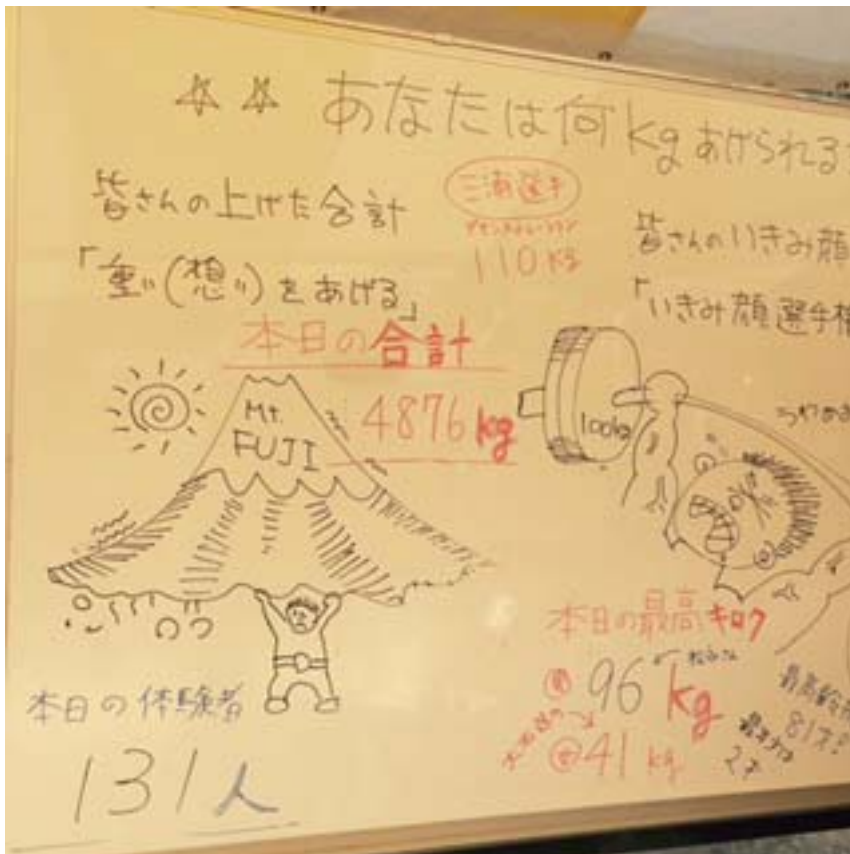 ☆☆ あなたは何kgあげられる
皆さんの上げた合計
「重い(想い)をあげる」
三浦選手
110kg
皆さんのいきみ顔
「いきみ顔選手権
本日の合計
4876kg
Mt.
FUJI
100kg
本日の最高キロク
男 96kg
女 41kg
81才!
2才
本日の体験者
131人